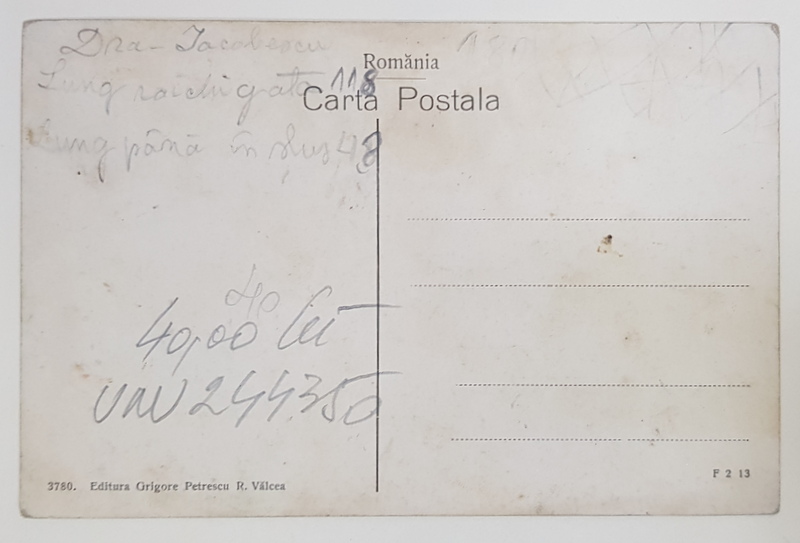 România
Carta Postala
Dra - Iacobescu
Lung rochi gata 118
Lung până în șus 48
40
40,00 lei
UNV 244350
3780. Editura Grigore Petrescu R. Vâlcea
F 2 13